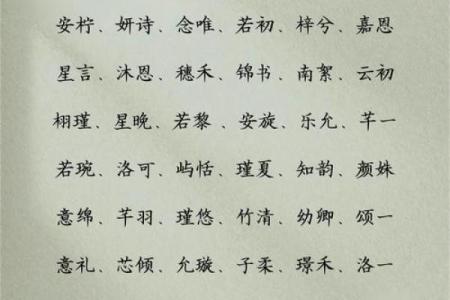 安柠、妍诗、念唯、若初、梓兮、嘉恩
星言、沐恩、穗禾、锦书、南絮、云初
栩瑾、星晚、若黎、安旋、乐允、芊一
若琬、洛可、屿恬、瑾夏、知韵、颜姝
意绵、芊羽、瑾悠、竹清、幼卿、颂一
意礼、芯倾、允璇、子柔、璟禾、洛一